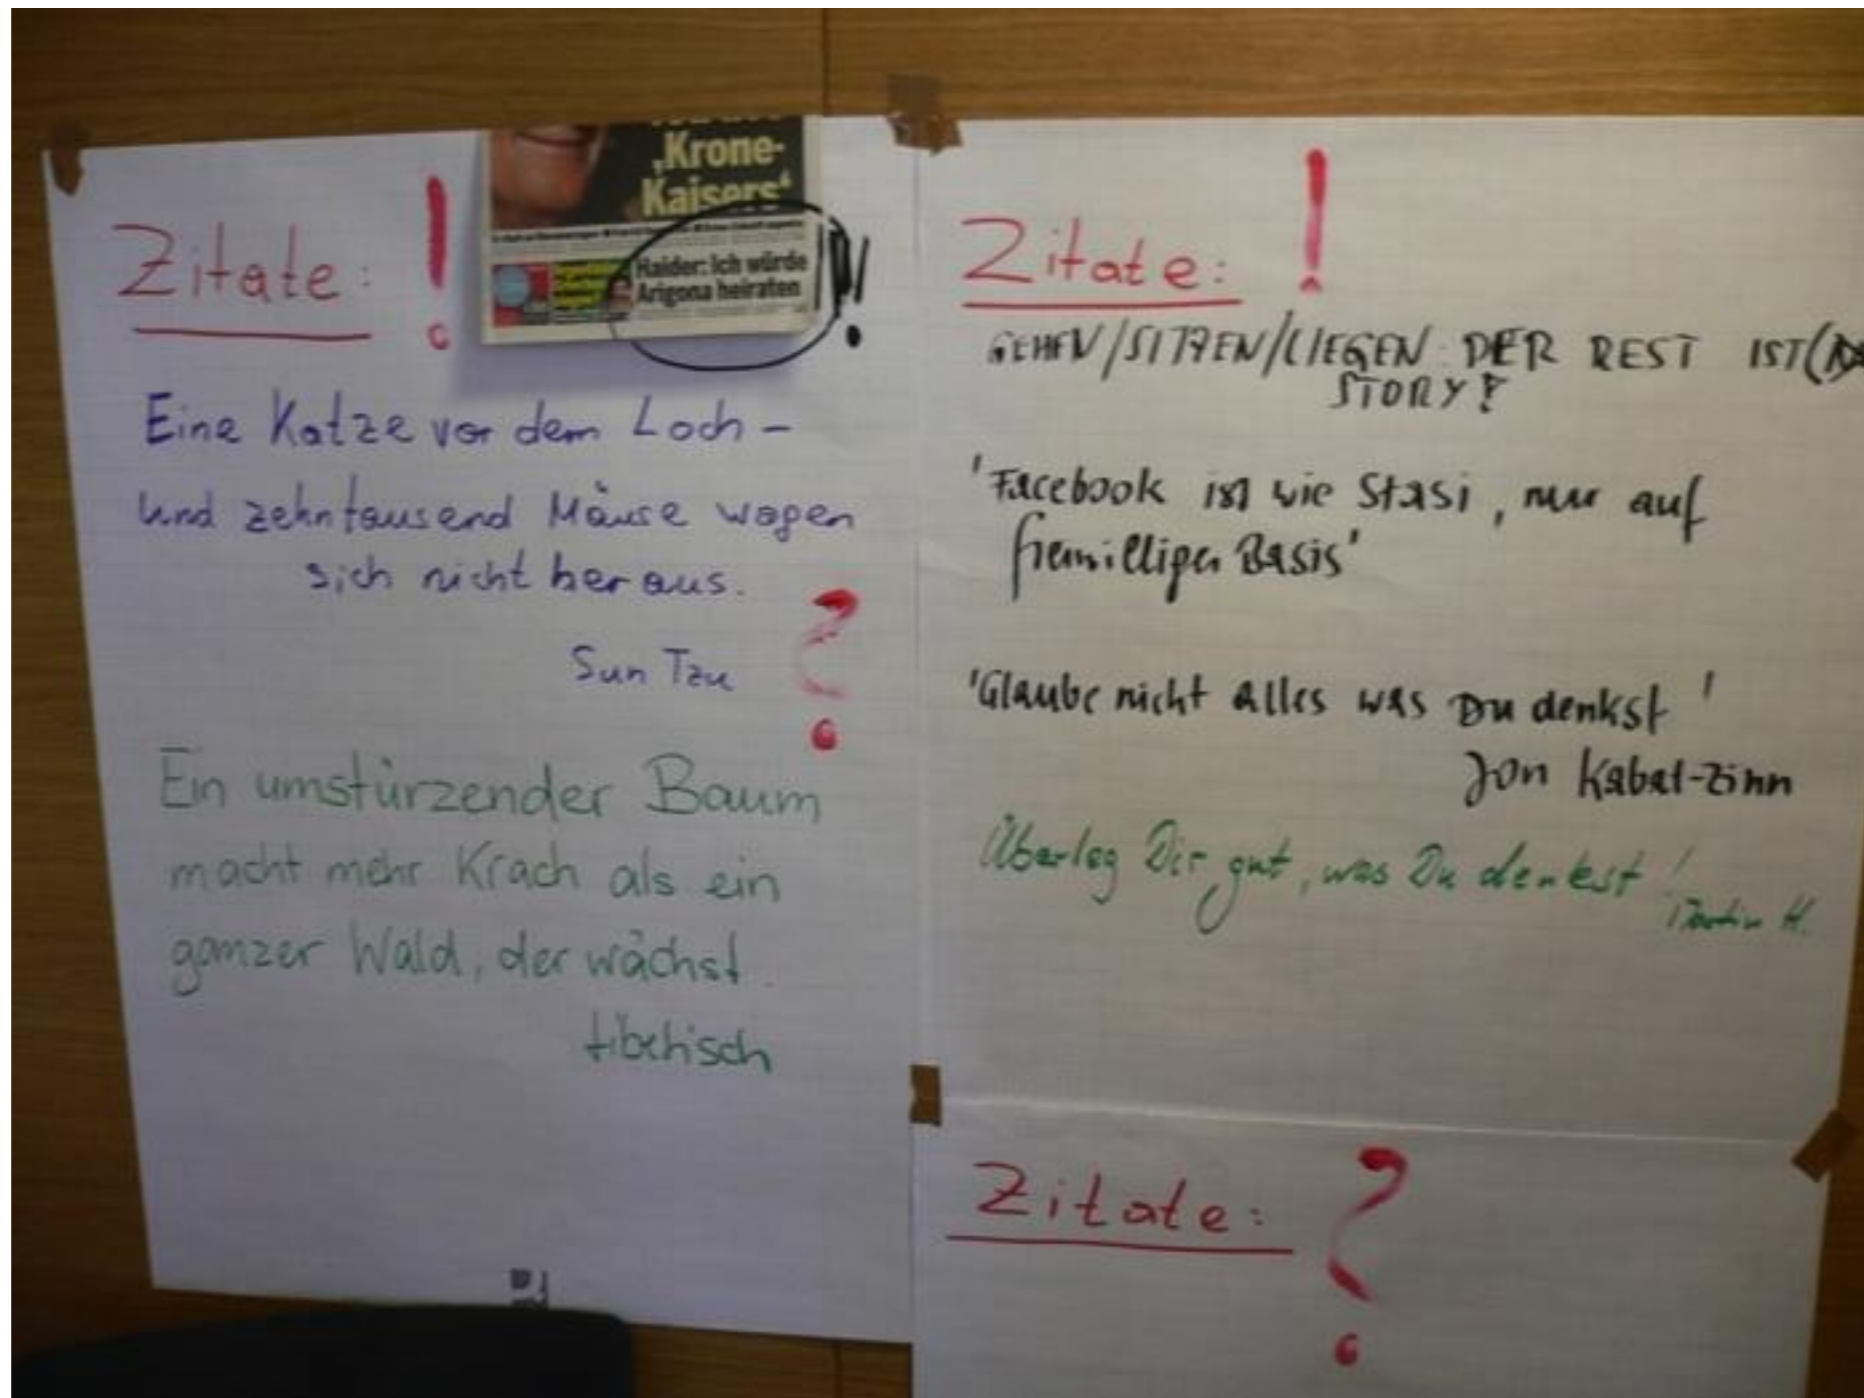 Zitate: !
‚Krone-
Kaisers‘
Haider: Ich würde
Arigona heiraten
!!
Eine Katze vor dem Loch –
und zehntausend Mäuse wagen
sich nicht heraus.
Sun Tzu ?
Ein umstürzender Baum
macht mehr Krach als ein
ganzer Wald, der wächst.
tibetisch
Zitate: !
GEHEN/SITZEN/LIEGEN: DER REST IST
STORY!
'Facebook ist wie Stasi, nur auf
freiwilliger Basis'
'Glaube nicht alles was Du denkst'
Jon Kabat-Zinn
Überleg Dir gut, was Du denkst!
Martin H.
Zitate: ?